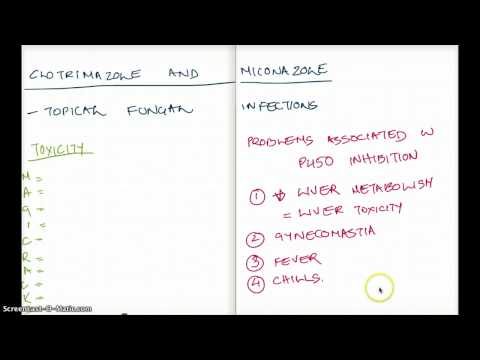 CLOTRIMAZOLE AND MICONAZOLE
- TOPICAL FUNGAL INFECTIONS
TOXICITY
M =
A =
G =
I =
C =
R =
A =
C =
K =
PROBLEMS ASSOCIATED W
P450 INHIBITION
① ↓ LIVER METABOLISM
= LIVER TOXICITY
② GYNECOMASTIA
③ FEVER
④ CHILLS.
Screencast-O-Matic.com